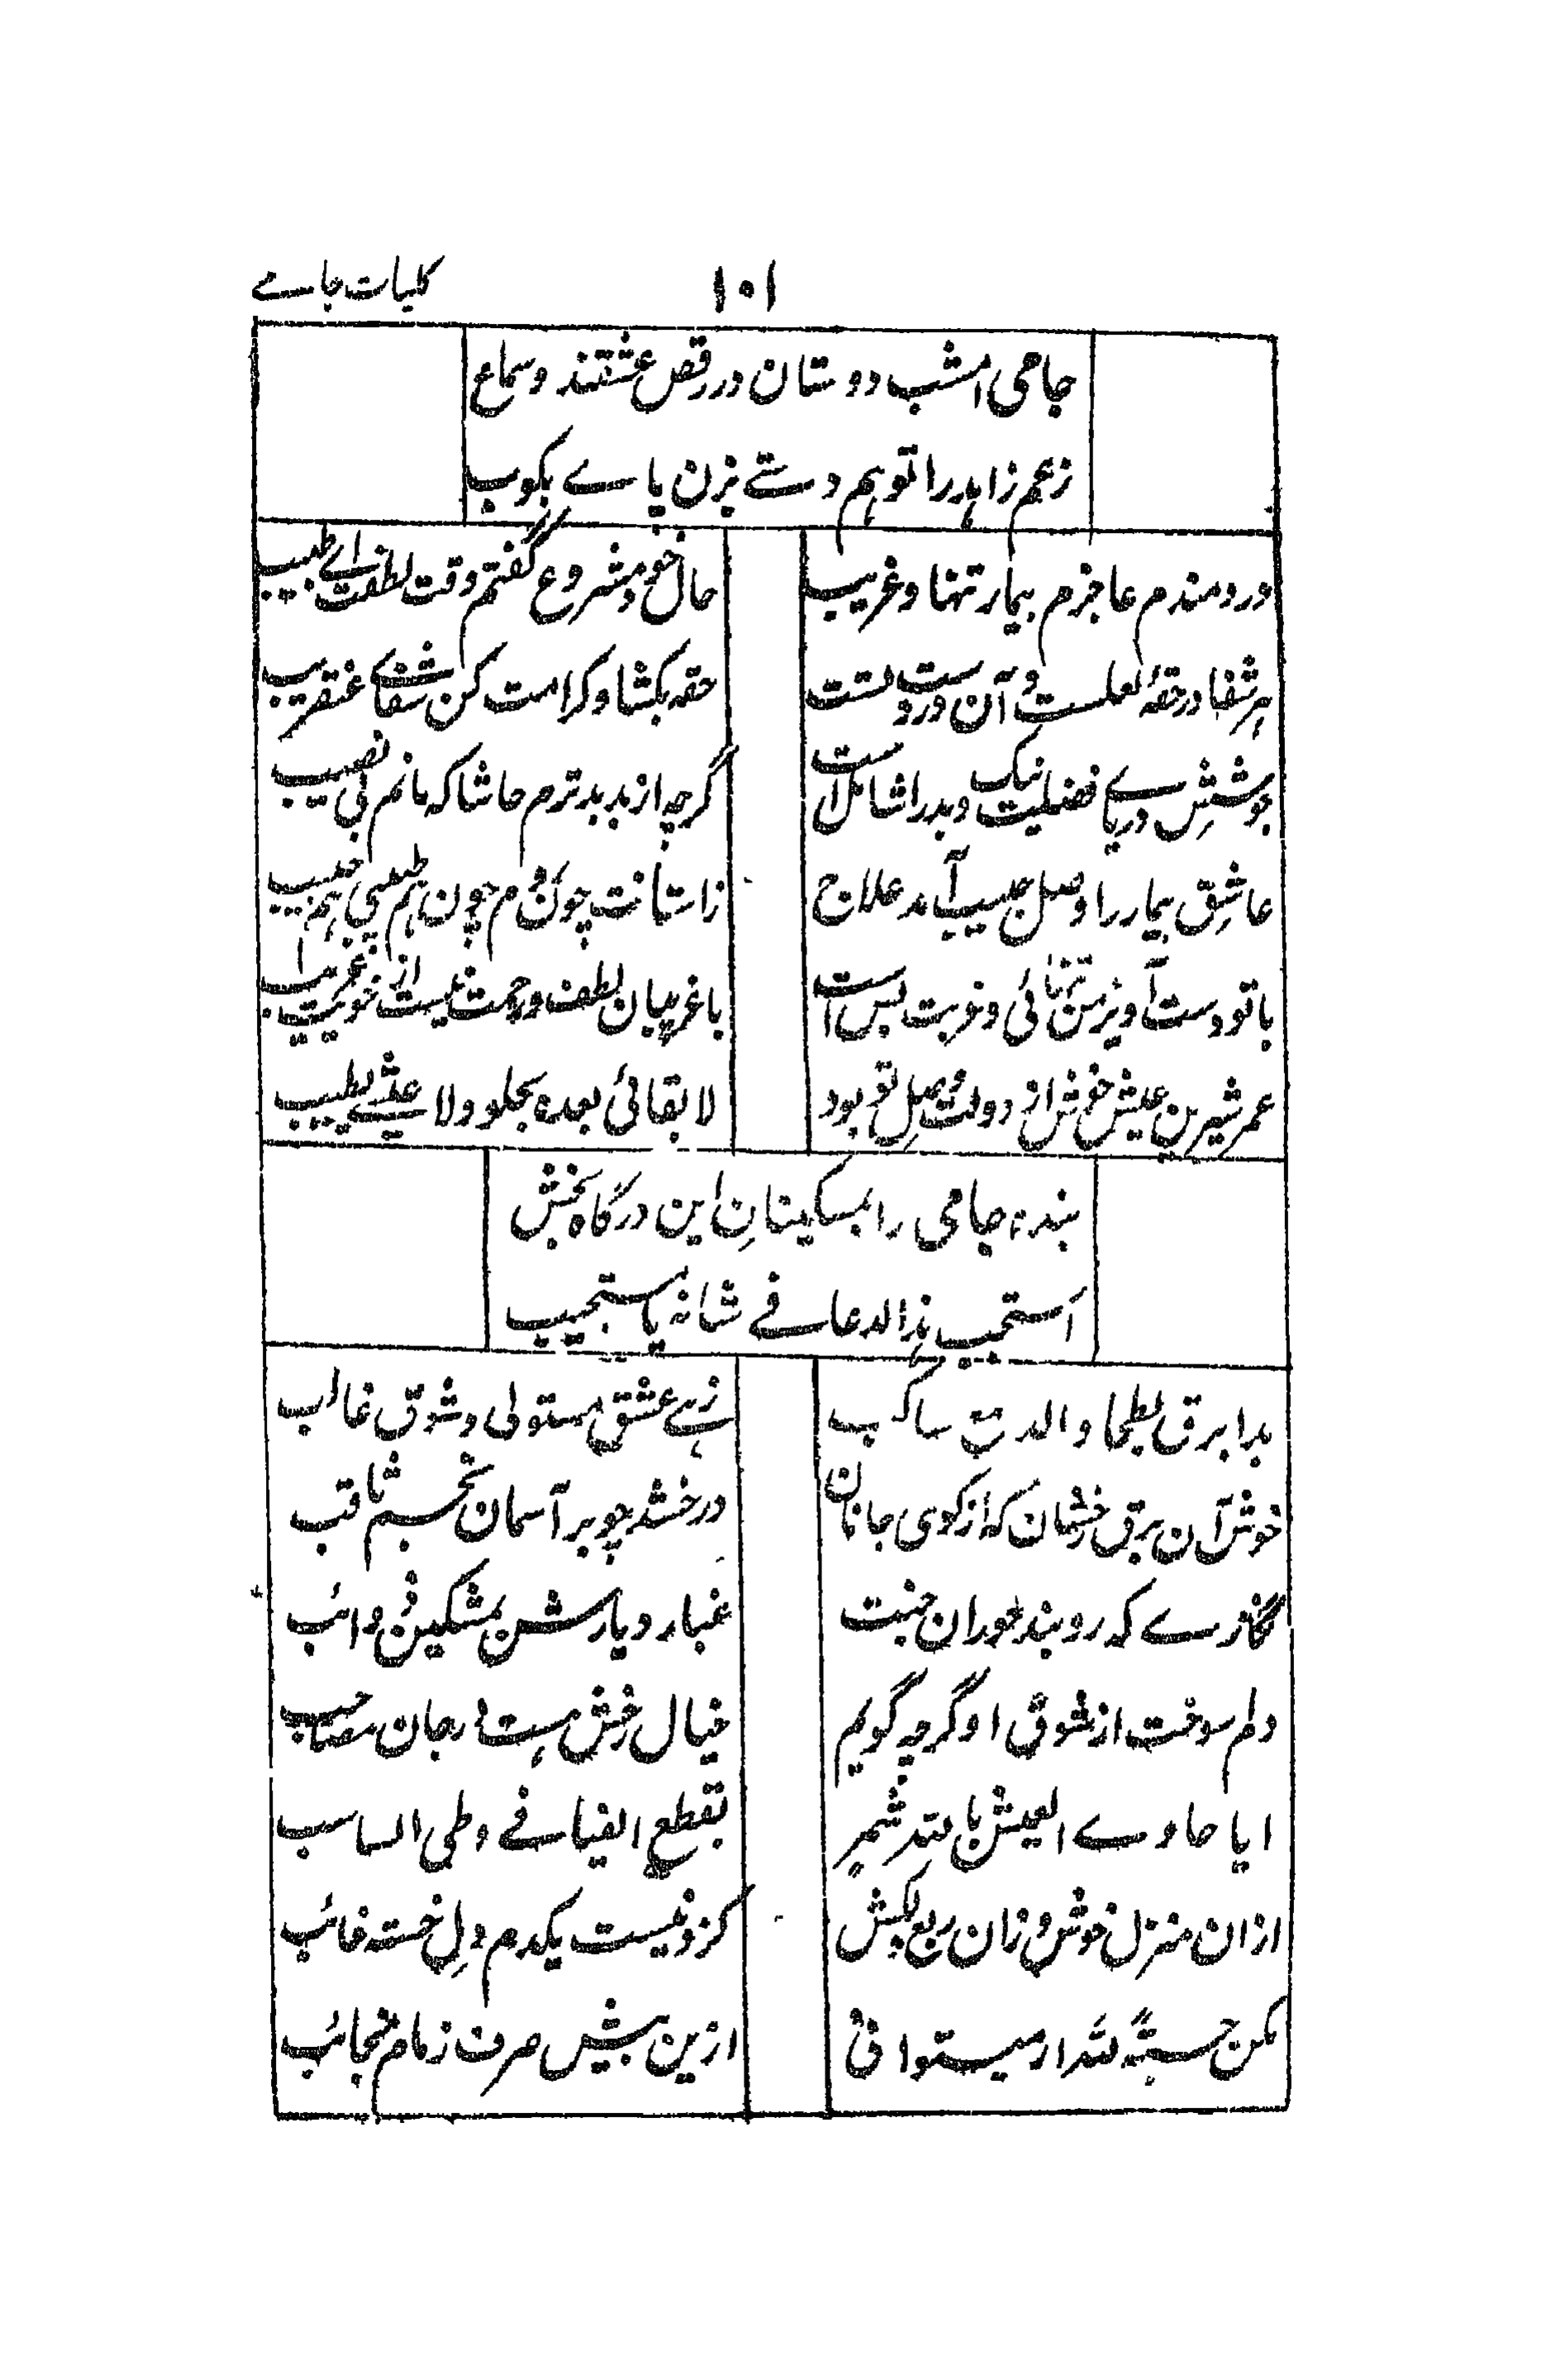 کلیات جامے
۱۰۱
جامی امشب دوستان در رقص عشقند و سماع
زعم زاہد را تو ہم دستے بزن پاے بکوب
دردمندم عاجزم بیمار تنہا و غریب
حال خود مشروع گفتم وقت لطفت اے طبیب
ہر شفا در حقۂ لعلست و آن در دست تست
حقہ بکشا و کرامت کن شفاے عنقریب
جوشش دریاے فضلیت نیک و بد را شامل است
گرچہ از بد بدترم حاشا کہ مانم بی نصیب
عاشق بیمار را وصل حبیب آمد علاج
ز آستانت چون روم چون ہم طبیبی ہم حبیب
با تو دست آویز من تنہائی و غربت بس است
با غریبان لطف و رحمت نیست از خویت غریب
عمر شیرین عیش خوش از دولت وصل تو بود
لا بقائی بعدہ یحلو ولا عیشے یطیب
بندہ جامی را بمسکینان این درگاہ بخش
استجب ہذا الدعا فے شانہ یا مستجیب
بدا برق بطحا والدمع ساکب
زہے عشق مستولی و شوق غالب
خوش آن برق رخشان کہ از کوی جانان
درخشد چو بر آسمان نجم ثاقب
نگارے کہ روبند حوران جنت
غبار دیارش بمشکین ذوائب
دلم سوخت از شوق او گرچہ گویم
خیال رخش ہست در جان مصاحب
ایا حاوے العیش باللہ شمر
بقطع الفیافے وطی السباسب
ازان منزل خوش وزان ربع دلکش
کزو نیست یکدم دل خستہ غائب
مکن حسبۃً للہ ار میتوانی
ازین بیش صرف زمام نجائب